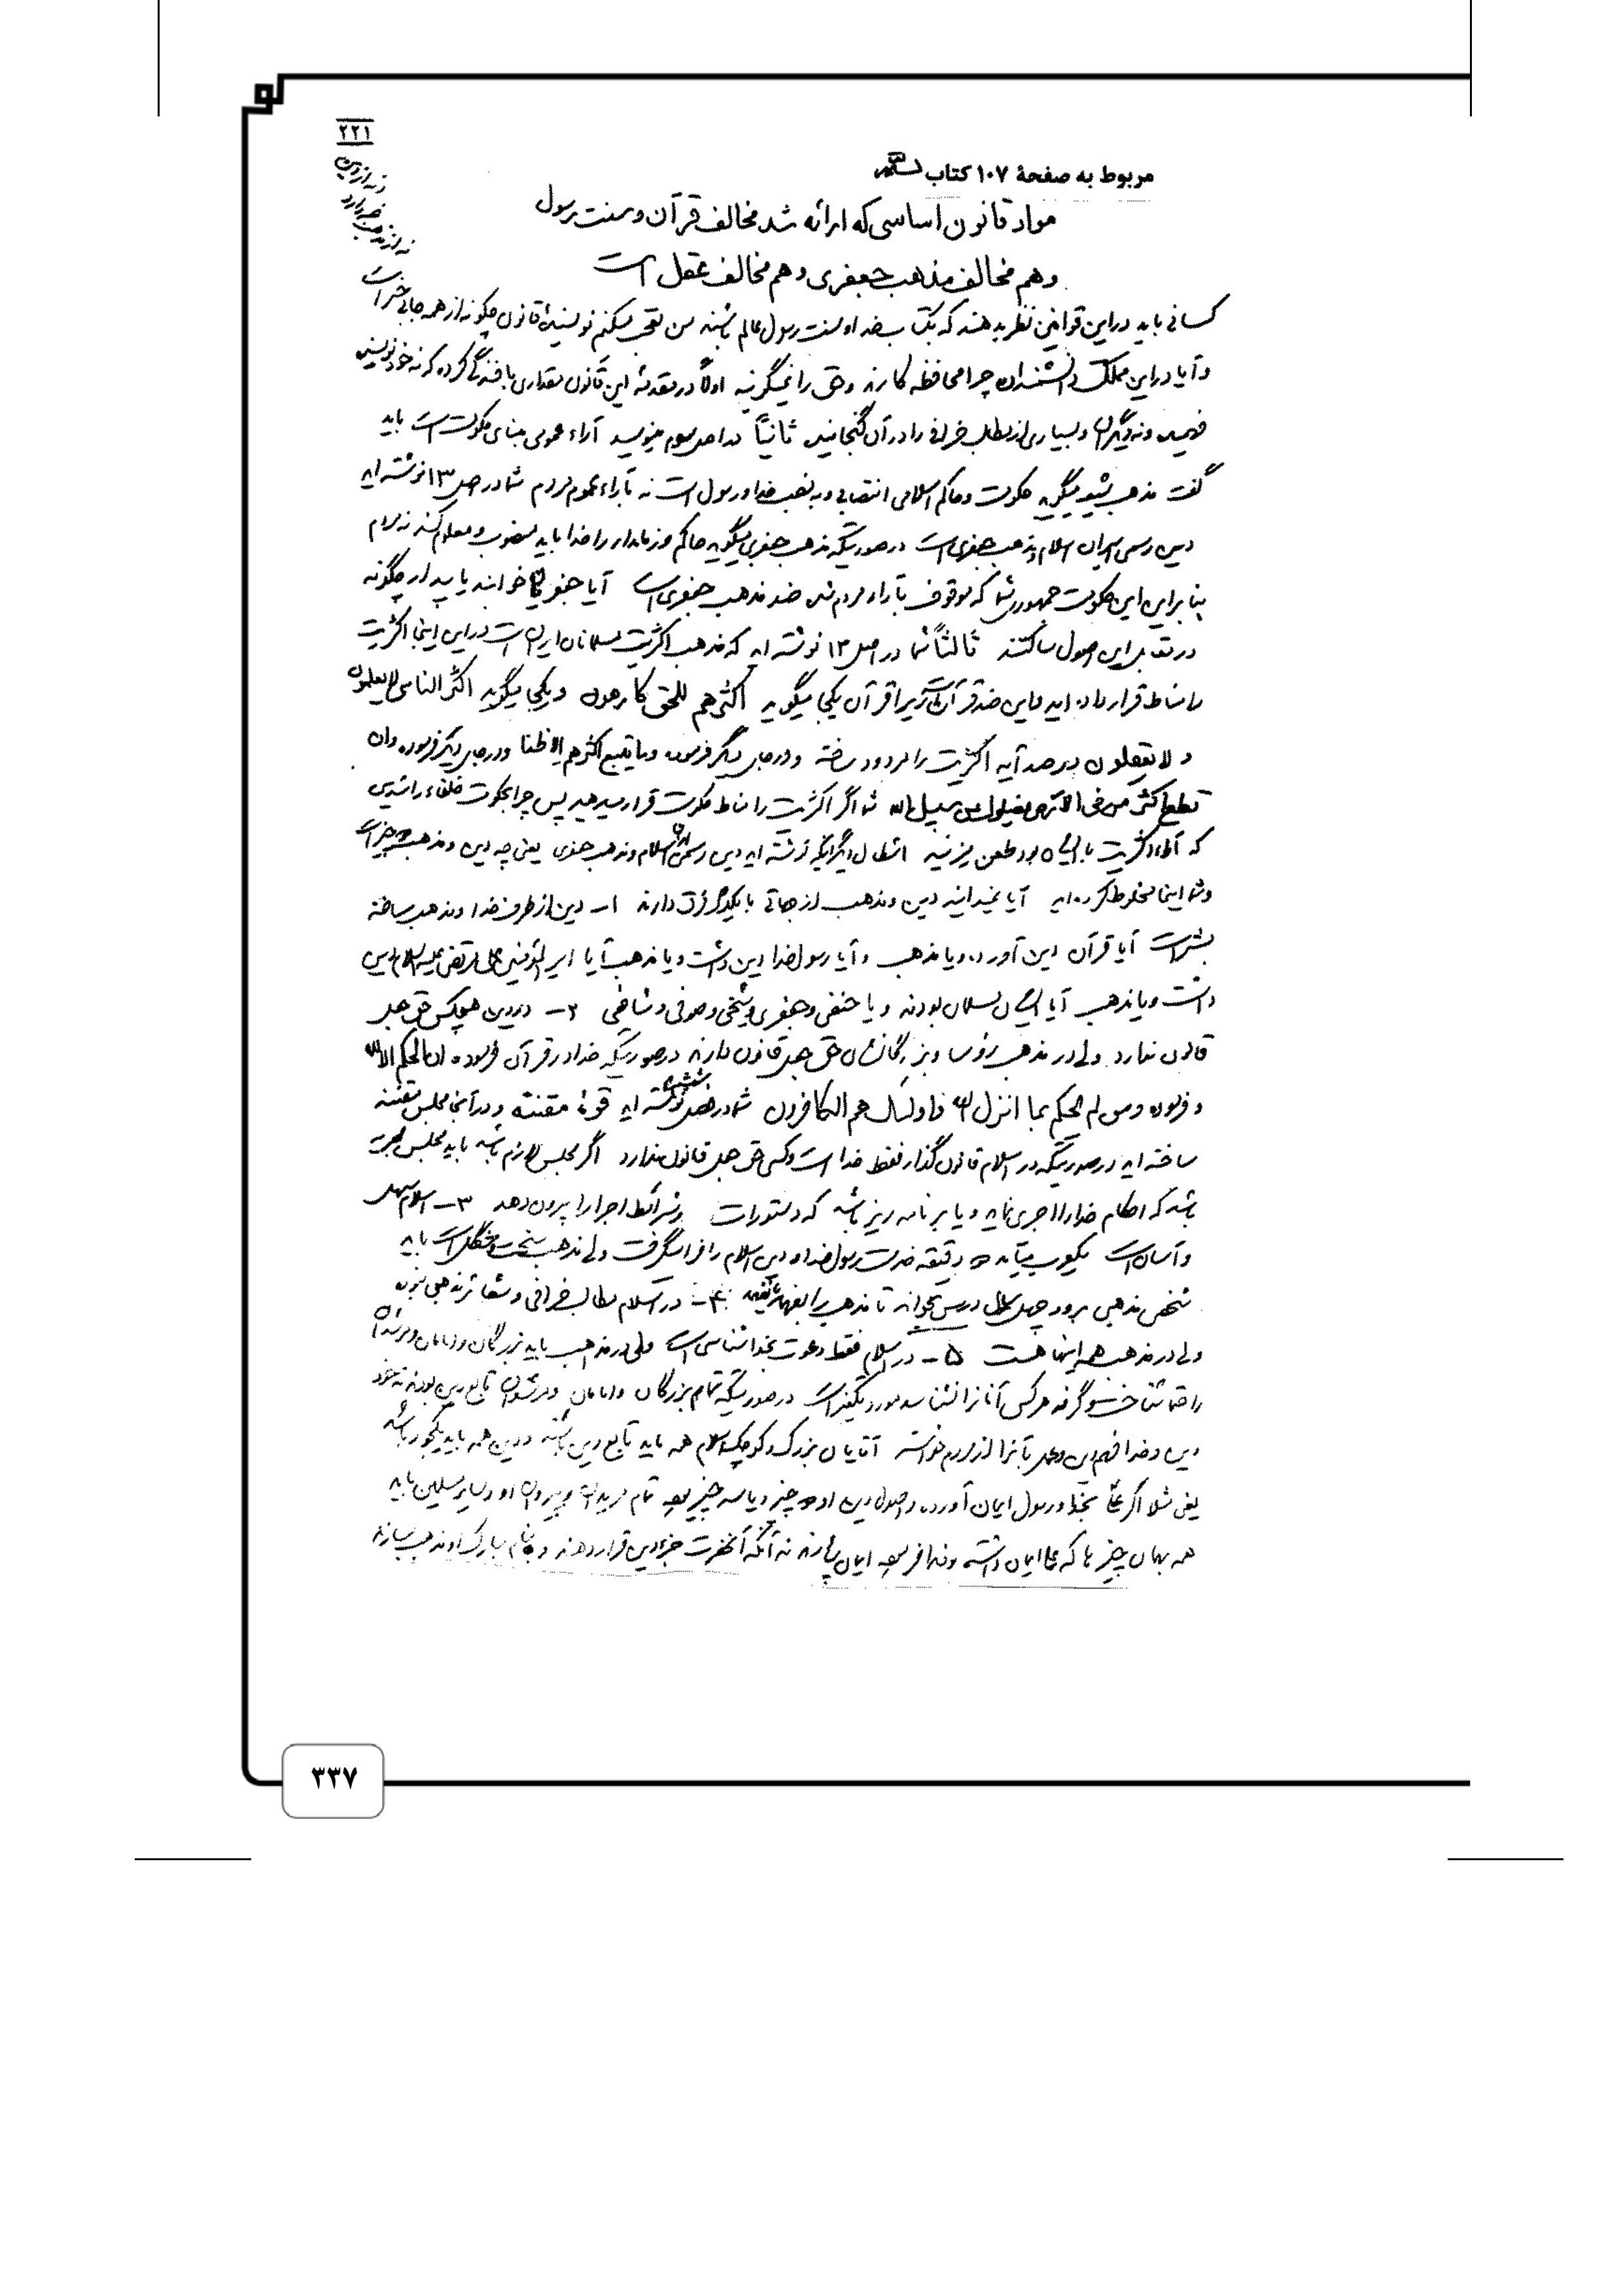 ۲۲۱
نه از دین
خبر دارد
نه از مذهب
مربوط به صفحهٔ ۱۰۷ کتاب
مواد قانون اساسی که ارائه شد مخالف قرآن و سنت رسول
و هم مخالف مذهب جعفری و هم مخالف عقل است
کسانی باید در این قوانین نظر بدهند که بکتاب خدا و سنت رسول عالم باشند من تعجب میکنم نویسندهٔ قانون چگونه از همه جا بی‌خبر است
و آیا در این مملکت دانشمندان چرا محافظه کارند و حق را نمیگویند اولاً در مقدمهٔ این قانون مقداری بافندگی کرده که نه خود نویسنده
فهمیده و نه دیگران و بسیاری از مطالب خرافی را در آن گنجانیده ثانیاً در اصل سوم مینویسد آراء عمومی مبنای حکومت است باید
گفت مذهب شیعه میگوید حکومت و حاکم اسلامی انتصابی و به نصب خدا و رسول است نه بآراء عموم مردم شما در اصل ۱۳ نوشته اید
دین رسمی ایران اسلام و مذهب جعفری است در صورتیکه مذهب جعفری میگوید حاکم و زمامدار را خدا باید منصوب و معلوم کند نه مردم
بنابراین این حکومت جمهوری شما که موقوف بآراء مردم شد ضد مذهب جعفری است آیا جعفریها خوابند یا بیدار چگونه
در مقابل این اصول ساکتند ثالثاً شما در اصل ۱۳ نوشته اید که مذهب اکثریت مسلمانان ایران است در این اینجا اکثریت
را مناط قرار داده اید و این ضد قرآن است زیرا قرآن یکجا میگوید اکثرهم للحق کارهون و یکجا میگوید اکثر الناس لا یعلمون
و لا یعقلون و در صد آیه اکثریت را مردود ساخته و در جای دیگر فرموده و ما یتبع اکثرهم الا ظنا و در جای دیگر فرموده و ان
تطع اکثر من فی الارض یضلوک عن سبیل الله شما اگر اکثریت را مناط حکومت قرار میدهید پس چرا بحکومت خلفاء راشدین
که آراء اکثریت با ایشان بود طعن میزنید اشکال دیگر اینکه نوشته اید دین رسمی ایران اسلام و مذهب جعفری یعنی چه دین و مذهب دو چیز است
و شما اینجا مخلوط کرده اید آیا نمیدانید دین و مذهب از جهاتی با یکدیگر فرق دارند ۱- دین از طرف خدا و مذهب ساخته
بشر است آیا قرآن دین آورده و یا مذهب و آیا رسولخدا دین داشت و یا مذهب آیا امیر المؤمنین علی مرتضی علیه السلام دین
داشت و یا مذهب آیا ایشان مسلمان بودند و یا حنفی و جعفری و شیخی و صوفی و شافعی ۲- در دین هیچکس حق جعل
قانون ندارد ولی در مذهب رؤسا و بزرگانشان حق جعل قانون دارند در صورتیکه خدا در قرآن فرموده ان الحکم الا لله
و فرموده و من لم یحکم بما انزل الله فاولئک هم الکافرون شما در اصل ششم نوشته اید قوهٔ مقننه و در آنجا مجلس مقننه
ساخته اید در صورتیکه در اسلام قانون گذار فقط خدا است و کسی حق جعل قانون ندارد اگر مجلس لازم باشد باید مجلس
باشد که احکام خدا را اجری نماید و یا برنامه ریز باشد که دستورات و شرائط اجرا را بیرون دهد ۳- اسلام سهل
و آسان است یکعرب میآمد ده دقیقه خدمت رسولخدا و دین اسلام را فرا میگرفت ولی مذهب سخت و مشکل است باید
شخص مذهبی برود چهل سال درس بخواند تا مذهب را بفهمد یا نفهمد ۴- در اسلام مطالب خرافی و شعائر مذهبی نبوده
ولی در مذهب همه اینها هست ۵- در اسلام فقط دعوت بخداشناسی است ولی در مذهب باید بزرگان و امامان و مرشدان
را حتما شناخت و گرنه هر کس آنانرا نشناسد مورد تکفیر است در صورتیکه تمام بزرگان و امامان و مرشدان تابع دین بودند نه خود
دین و خدا فهم دین و عمل بآنرا از مردم خواسته آقایان بزرگ و کوچک اسلام همه باید تابع دین باشند و دین همه باید یکجور باشد
یعنی مثلا اگر علی بخدا و رسول ایمان آورده و اصول دین او دو چیز و یا سه چیز بوده تمام مریدان و پیروان او و سایر مسلمین باید
همه بهمان چیزها که علی ایمان داشته و خدا فرموده ایمان بیاورند نه آنکه آنحضرت جزو دین قرار دهند و بنام مبارک او مذهب بسازند
۳۳۷